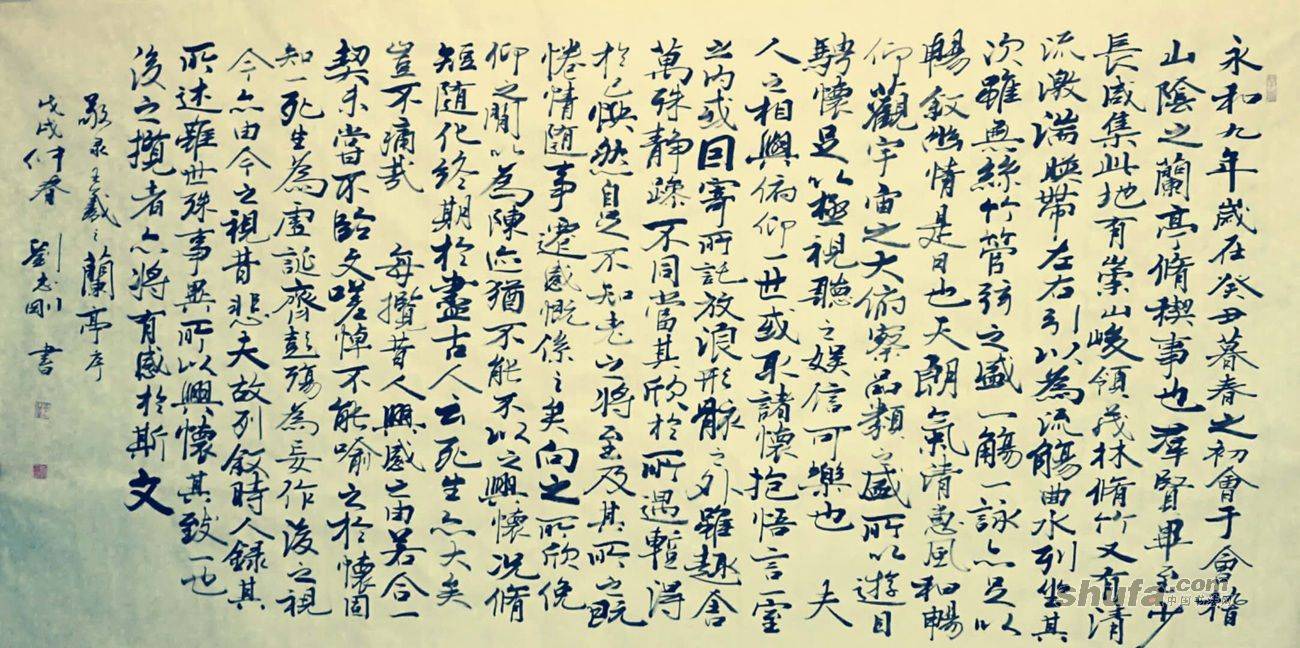 永和九年歲在癸丑暮春之初會于會稽
山陰之蘭亭脩稧事也羣賢畢至少
長咸集此地有崇山峻領茂林脩竹又有清
流激湍暎帶左右引以為流觴曲水列坐其
次雖無絲竹管弦之盛一觴一詠亦足以
暢敘幽情是日也天朗氣清惠風和暢
仰觀宇宙之大俯察品類之盛所以遊目
騁懷足以極視聽之娛信可樂也 夫
人之相與俯仰一世或取諸懷抱悟言一室
之內或因寄所託放浪形骸之外雖趣舍
萬殊靜躁不同當其欣於所遇暫得
於己怏然自足不知老之將至及其所之既
惓情隨事遷感慨係之矣向之所欣俛
仰之閒以為陳迹猶不能不以之興懷況脩
短隨化終期於盡古人云死生亦大矣
豈不痛哉 每攬昔人興感之由若合一
契未嘗不臨文嗟悼不能喻之於懷固
知一死生為虛誕齊彭殤為妄作後之視
今亦由今之視昔悲夫故列敘時人錄其
所述雖世殊事異所以興懷其致一也
後之攬者亦將有感於斯文
敬录王羲之蘭亭序
戊戌仲春 劉志剛 書
shufa.com
中国书法网